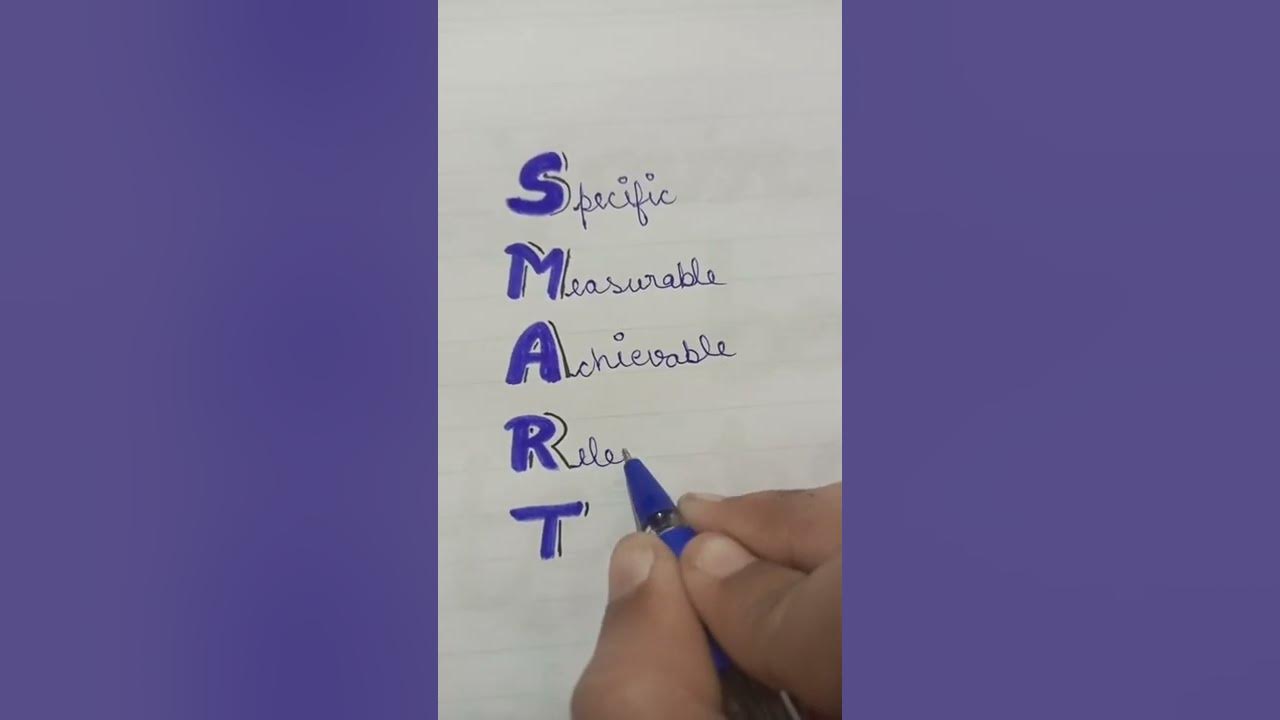 Specific
Measurable
Achievable
Rele
T